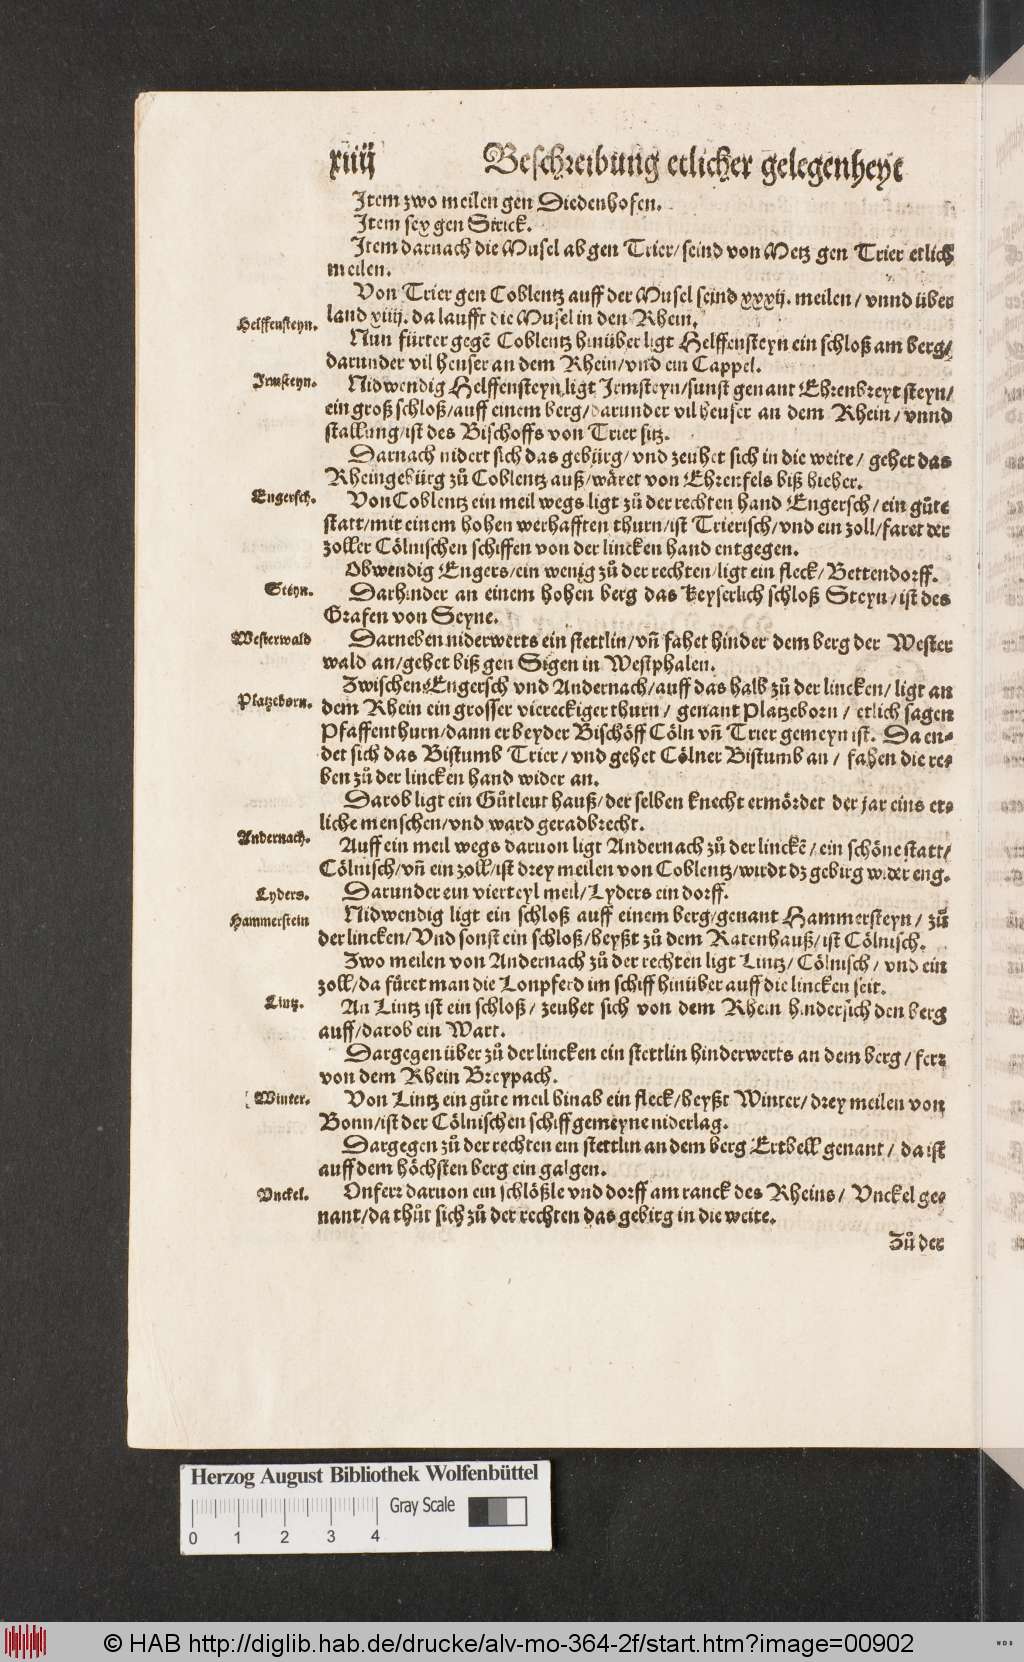 xiiij Beschreibung etlicher gelegenheyt
Item zwo meilen gen Diedenhofen.
Item sex gen Sirick.
Item darnach die Musel ab gen Trier/seind von Metz gen Trier etlich
meilen.
Von Trier gen Coblentz auff der Musel seind xxxij. meilen/ vnnd über
land xiiij. da laufft die Musel in den Rhein.
Helffensteyn.
Nun fürter gegē Coblentz hinüber ligt Helffensteyn ein schloß am berg/
darunder vil heuser an dem Rhein/vnd ein Cappel.
Irmsteyn.
Nidwendig Helffensteyn ligt Irmsteyn/sunst genant Ehrenbreyt steyn/
ein groß schloß/auff einem berg/darunder vil heuser an dem Rhein/ vnnd
stallung/ist des Bischoffs von Trier sitz.
Darnach nidert sich das gebürg/ vnd zeuhet sich in die weite/ gehet das
Rheingebürg zů Coblentz auß/wäret von Ehrenfels biß hieher.
Engersch.
Von Coblentz ein meil wegs ligt zů der rechten hand Engersch/ein gůte
statt/mit einem hohen werhafften thurn/ist Trierisch/vnd ein zoll/faret der
zoller Cölnischen schiffen von der lincken hand entgegen.
Obwendig Engers/ein wenig zů der rechten/ligt ein fleck/Bettendorff.
Steyn.
Darhinder an einem hohen berg das keyserlich schloß Steyn/ist des
Grafen von Seyne.
Westerwald
Darneben niderwerts ein stettlin/vñ fahet hinder dem berg der Wester
wald an/gehet biß gen Sigen in Westphalen.
Zwischen Engersch vnd Andernach/auff das halb zů der lincken/ligt an
Platzeborn.
dem Rhein ein grosser viereckiger thurn/ genant Platzeborn/ etlich sagen
Pfaffenthurn/dann er beyder Bischöff Cöln vñ Trier gemeyn ist. Da en-
det sich das Bistumb Trier/vnd gehet Cölner Bistumb an/ fahen die re-
ben zů der lincken hand wider an.
Darob ligt ein Gůtleut hauß/der selben knecht ermördet der jar eins et-
liche menschen/vnd ward geradbrecht.
Andernach.
Auff ein meil wegs daruon ligt Andernach zů der linckē/ein schöne statt/
Cölnisch/vñ ein zoll/ist drey meilen von Coblentz/wirdt dz gebirg wider eng.
Lyders.
Darunder ein vierteyl meil/Lyders ein dorff.
Hammerstein
Nidwendig ligt ein schloß auff einem berg/genant Hammersteyn/ zů
der lincken/Vnd sonst ein schloß/heyßt zů dem Ratenhauß/ist Cölnisch.
Zwo meilen von Andernach zů der rechten ligt Lintz/Cölnisch/ vnd ein
zoll/da fůret man die Lonpferd im schiff hinüber auff die lincken seit.
Lintz.
An Lintz ist ein schloß/ zeuhet sich von dem Rhein hindersich den berg
auff/darob ein Wart.
Dargegen über zů der lincken ein stettlin hinderwerts an dem berg/ ferr
von dem Rhein Breypach.
Winter.
Von Lintz ein gůte meil hinab ein fleck/heyßt Winter/drey meilen von
Bonn/ist der Cölnischen schiff gemeyne niderlag.
Dargegen zů der rechten ein stettlin an dem berg Ertbell genant/ da ist
auff dem höchsten berg ein galgen.
Vnckel.
Onferr daruon ein schlößle vnd dorff am ranck des Rheins/ Vnckel ge-
nant/da thůt sich zů der rechten das gebirg in die weite.
Zů der
Herzog August Bibliothek Wolfenbüttel
Gray Scale
0 1 2 3 4
© HAB http://diglib.hab.de/drucke/alv-mo-364-2f/start.htm?image=00902